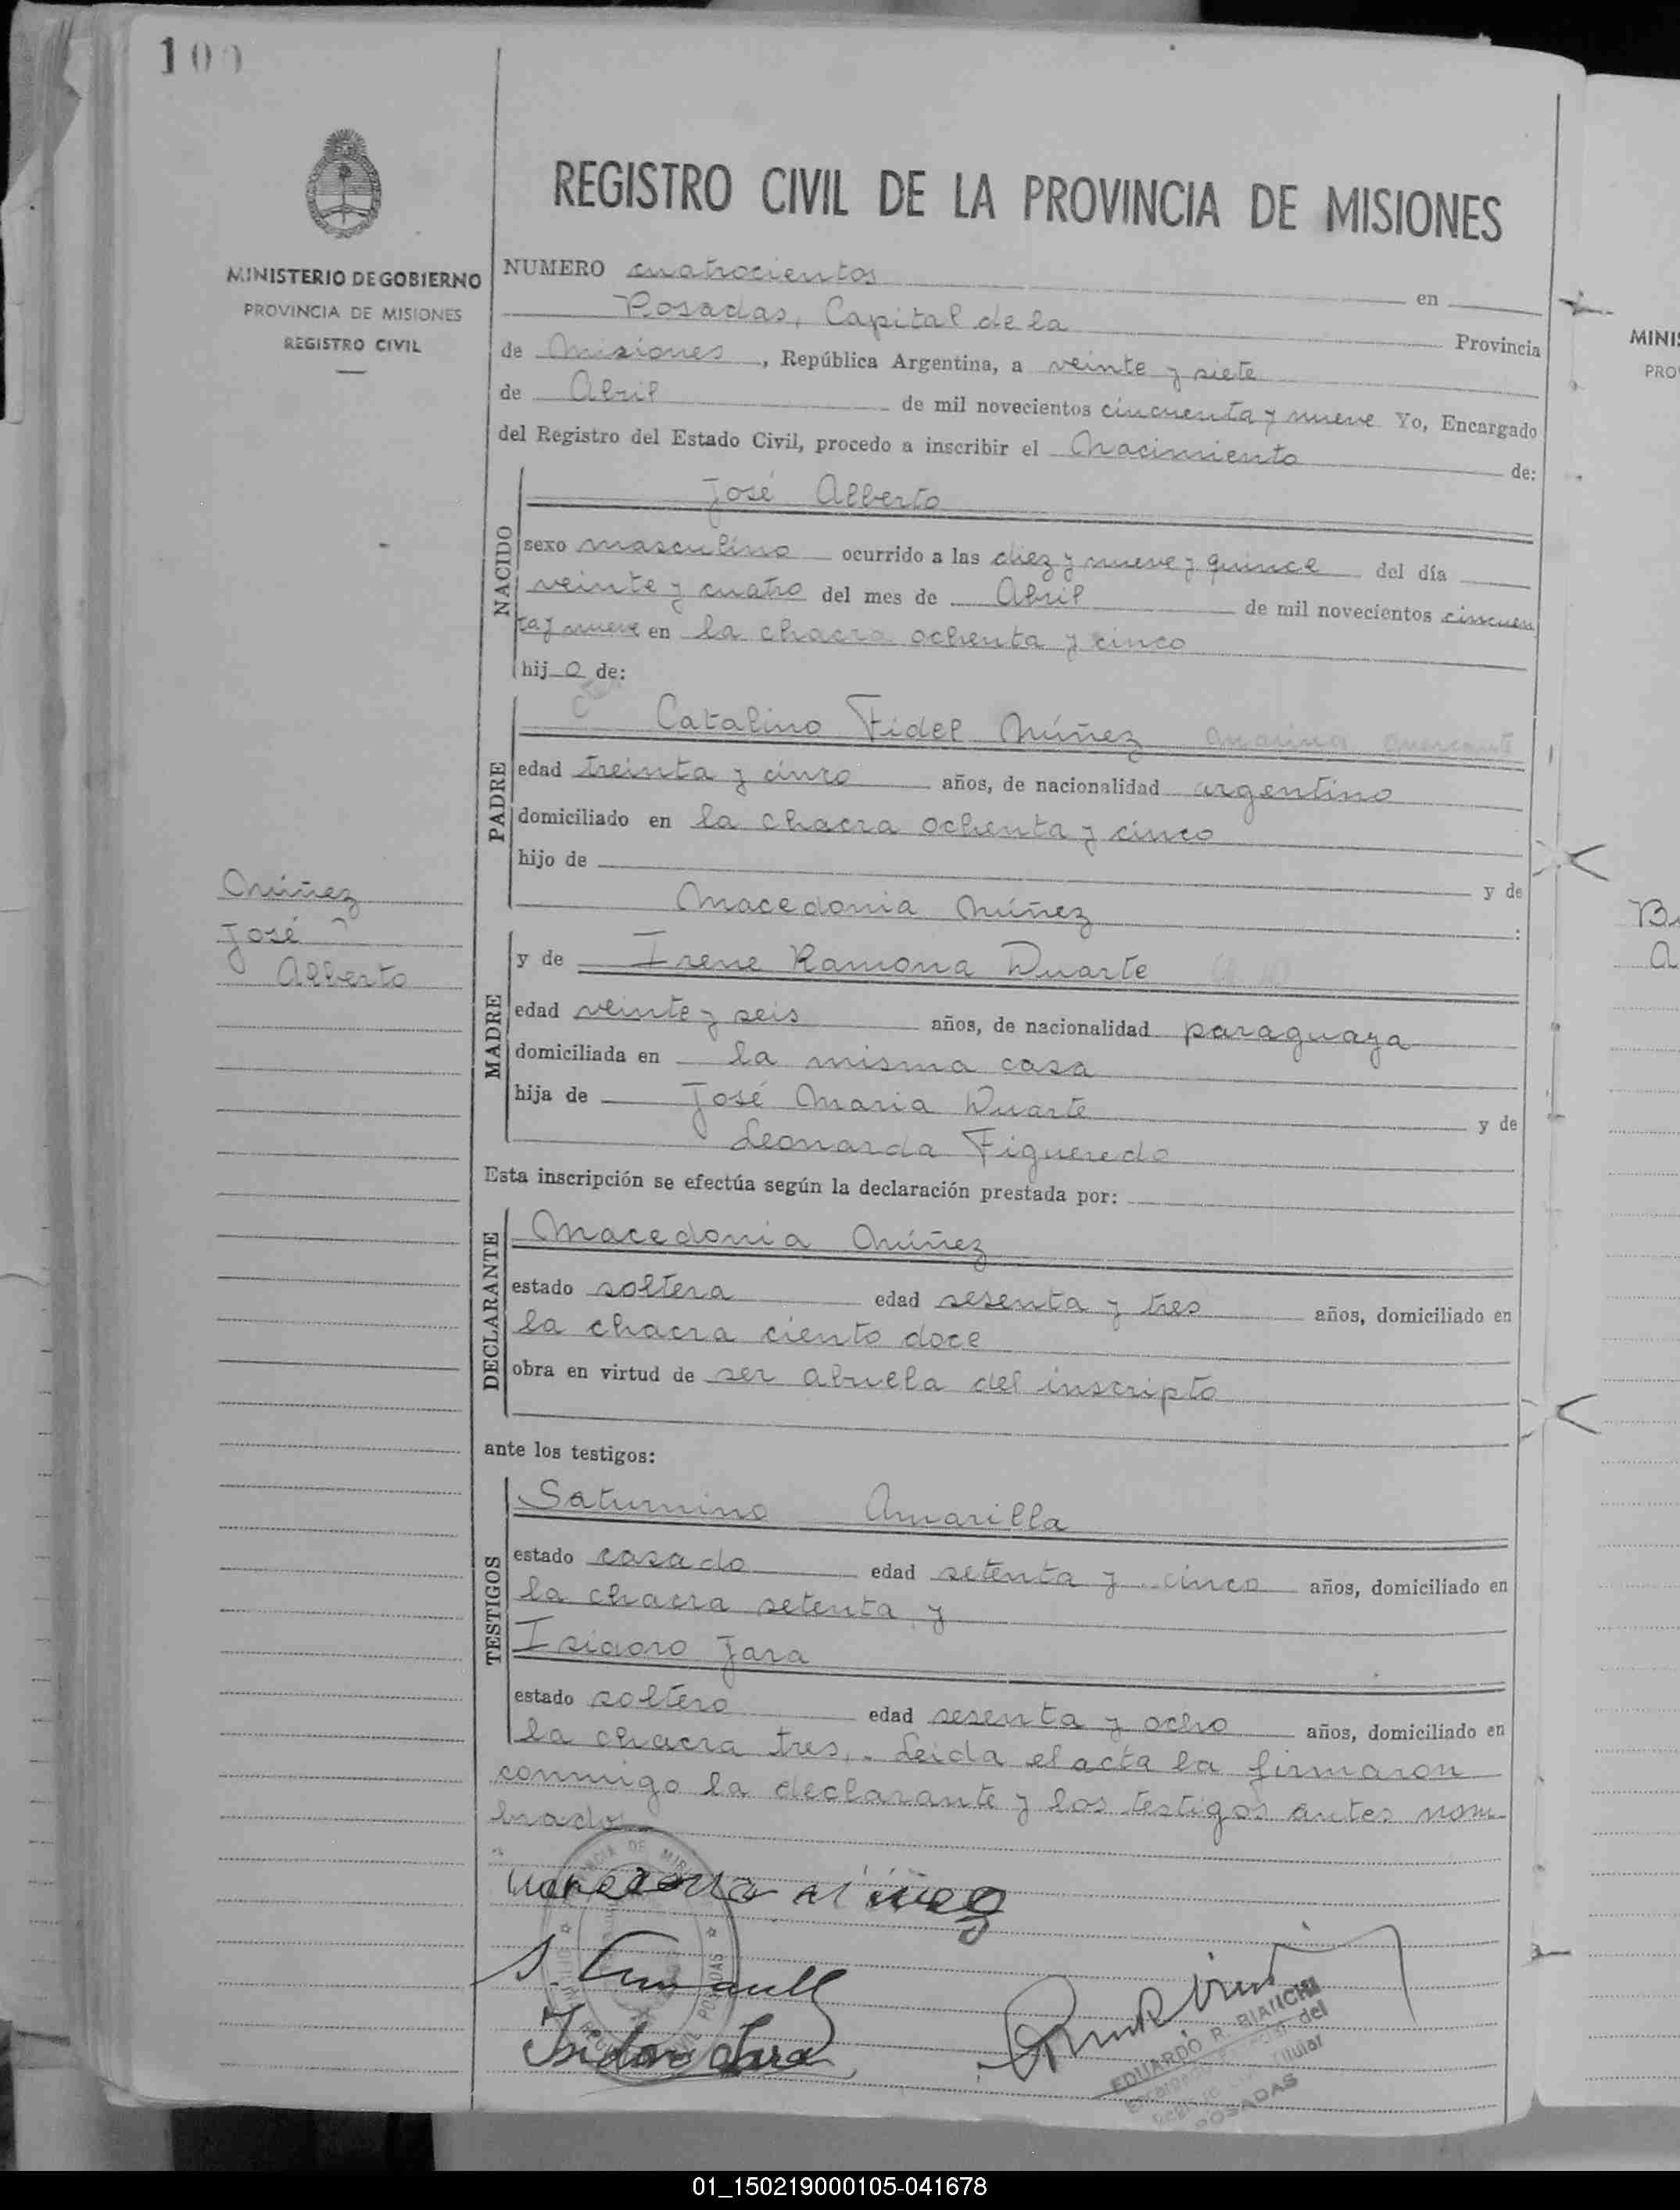 100
MINISTERIO DE GOBIERNO
PROVINCIA DE MISIONES
REGISTRO CIVIL
REGISTRO CIVIL DE LA PROVINCIA DE MISIONES
NUMERO cuatrocientos en
Posadas, Capital de la Provincia
de Misiones, República Argentina, a veinte y siete
de Abril de mil novecientos cincuenta y nueve Yo, Encargado
del Registro del Estado Civil, procedo a inscribir el Nacimiento de:
NACIDO
José Alberto
sexo masculino ocurrido a las diez y nueve y quince del día
veinte y cuatro del mes de Abril de mil novecientos cincuen
ta y nueve en la chacra ochenta y cinco
hijo de:
PADRE
Catalino Fidel Núñez Marina Mercante
edad treinta y cinco años, de nacionalidad argentino
domiciliado en la chacra ochenta y cinco
hijo de y de
Macedonia Núñez :
Núñez
José
Alberto
MADRE
y de Irene Ramona Duarte
edad veinte y seis años, de nacionalidad paraguaya
domiciliada en la misma casa
hija de José Maria Duarte y de
Leonarda Figueredo
Esta inscripción se efectúa según la declaración prestada por:
DECLARANTE
Macedonia Núñez
estado soltera edad sesenta y tres años, domiciliado en
la chacra ciento doce
obra en virtud de ser abuela del inscripto
ante los testigos:
TESTIGOS
Saturnino Amarilla
estado casado edad setenta y cinco años, domiciliado en
la chacra setenta y
Isidoro Jara
estado soltero edad sesenta y ocho años, domiciliado en
la chacra tres.- Leida el acta la firmaron
conmigo la declarante y los testigos antes nom
brados
Isidoro Jara
EDUARDO R. BIANCHI
Encargado del
Titular
POSADAS
MINIS
PRO
01_150219000105-041678